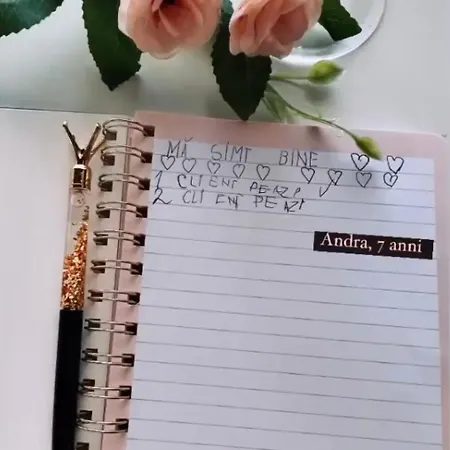 MĂ SIMT BINE ♡ ♡
♡ ♡ ♡ ♡ ♡ ♡ ♡ ♡ ♡
1 CLIENT PE AZI ✓
2 CLIENT PE AZI
Andra, 7 anni